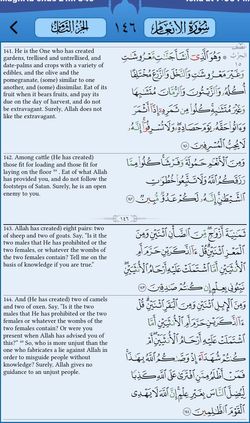 الجزء الثامن
١٤٦
سورة الأنعام
141. He is the One who has created
gardens, trellised and untrellised, and
date-palms and crops with a variety of
edibles, and the olive and the
pomegranate, (some) similar to one
another, and (some) dissimilar. Eat of its
fruit when it bears fruits, and pay its
due on the day of harvest, and do not
be extravagant. Surely, Allah does not
like the extravagant.
وَهُوَ الَّذِي أَنشَأَ جَنَّاتٍ مَّعْرُوشَاتٍ
وَغَيْرَ مَعْرُوشَاتٍ وَالنَّخْلَ وَالزَّرْعَ مُخْتَلِفًا
أُكُلُهُ وَالزَّيْتُونَ وَالرُّمَّانَ مُتَشَابِهًا
وَغَيْرَ مُتَشَابِهٍ كُلُوا مِن ثَمَرِهِ إِذَا أَثْمَرَ
وَآتُوا حَقَّهُ يَوْمَ حَصَادِهِ وَلَا تُسْرِفُوا إِنَّهُ
لَا يُحِبُّ الْمُسْرِفِينَ
142. Among cattle (He has created)
those fit for loading and those fit for
laying on the floor . Eat of what Allah
has provided you, and do not follow the
footsteps of Satan. Surely, he is an open
enemy to you.
وَمِنَ الْأَنْعَامِ حَمُولَةً وَفَرْشًا كُلُوا مِمَّا
رَزَقَكُمُ اللَّهُ وَلَا تَتَّبِعُوا خُطُوَاتِ
الشَّيْطَانِ إِنَّهُ لَكُمْ عَدُوٌّ مُّبِينٌ
١٤٦
143. Allah has created) eight pairs: two
of sheep and two of goats. Say, "Is it the
two males that He has prohibited or the
two females, or whatever the wombs of
the two females contain? Tell me on the
basis of knowledge if you are true."
ثَمَانِيَةَ أَزْوَاجٍ مِّنَ الضَّأْنِ اثْنَيْنِ وَمِنَ
الْمَعْزِ اثْنَيْنِ قُلْ آلذَّكَرَيْنِ حَرَّمَ أَمِ
الْأُنثَيَيْنِ أَمَّا اشْتَمَلَتْ عَلَيْهِ أَرْحَامُ الْأُنثَيَيْنِ
نَبِّئُونِي بِعِلْمٍ إِن كُنتُمْ صَادِقِينَ
144. And (He has created) two of camels
and two of oxen. Say, "Is it the two
males that He has prohibited or the two
females or whatever the wombs of the
two females contain? Or were you
present when Allah has advised you of
this?" So, who is more unjust than the
one who fabricates a lie against Allah in
order to misguide people without
knowledge? Surely, Allah gives no
guidance to an unjust people.
وَمِنَ الْإِبِلِ اثْنَيْنِ وَمِنَ الْبَقَرِ اثْنَيْنِ قُلْ
آلذَّكَرَيْنِ حَرَّمَ أَمِ الْأُنثَيَيْنِ أَمَّا
اشْتَمَلَتْ عَلَيْهِ أَرْحَامُ الْأُنثَيَيْنِ أَمْ
كُنتُمْ شُهَدَاءَ إِذْ وَصَّاكُمُ اللَّهُ بِهَٰذَا
فَمَنْ أَظْلَمُ مِمَّنِ افْتَرَىٰ عَلَى اللَّهِ كَذِبًا
لِّيُضِلَّ النَّاسَ بِغَيْرِ عِلْمٍ إِنَّ اللَّهَ لَا يَهْدِي
الْقَوْمَ الظَّالِمِينَ